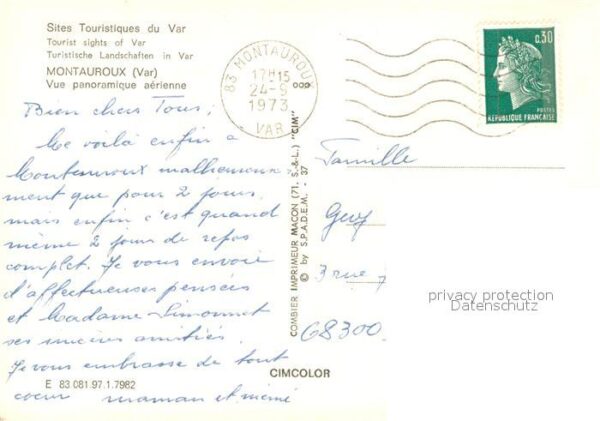 Sites Touristiques du Var
Tourist sights of Var
Turistische Landschaften in Var
MONTAUROUX (Var)
Vue panoramique aérienne
Bien chers Tous,
Me voilà enfin à
Montauroux malheureuse
ment que pour 2 jours,
mais enfin c'est quand
même 2 jours de repos
complet. Je vous envoie
d'affectueuses pensées
et Madame Simonnet
ses sincères amitiés.
Je vous embrasse de tout
coeur maman et mémé
E 83.081.97.1.7982
COMBIER IMPRIMEUR MACON (71. S.&L.) "CIM"
© by S.P.A.D.E.M. - 37
CIMCOLOR
83 MONTAUROUX
17H15
24-9
1973
VAR
0,30
POSTES
REPUBLIQUE FRANÇAISE
Famille
3 rue
68300
privacy protection
Datenschutz